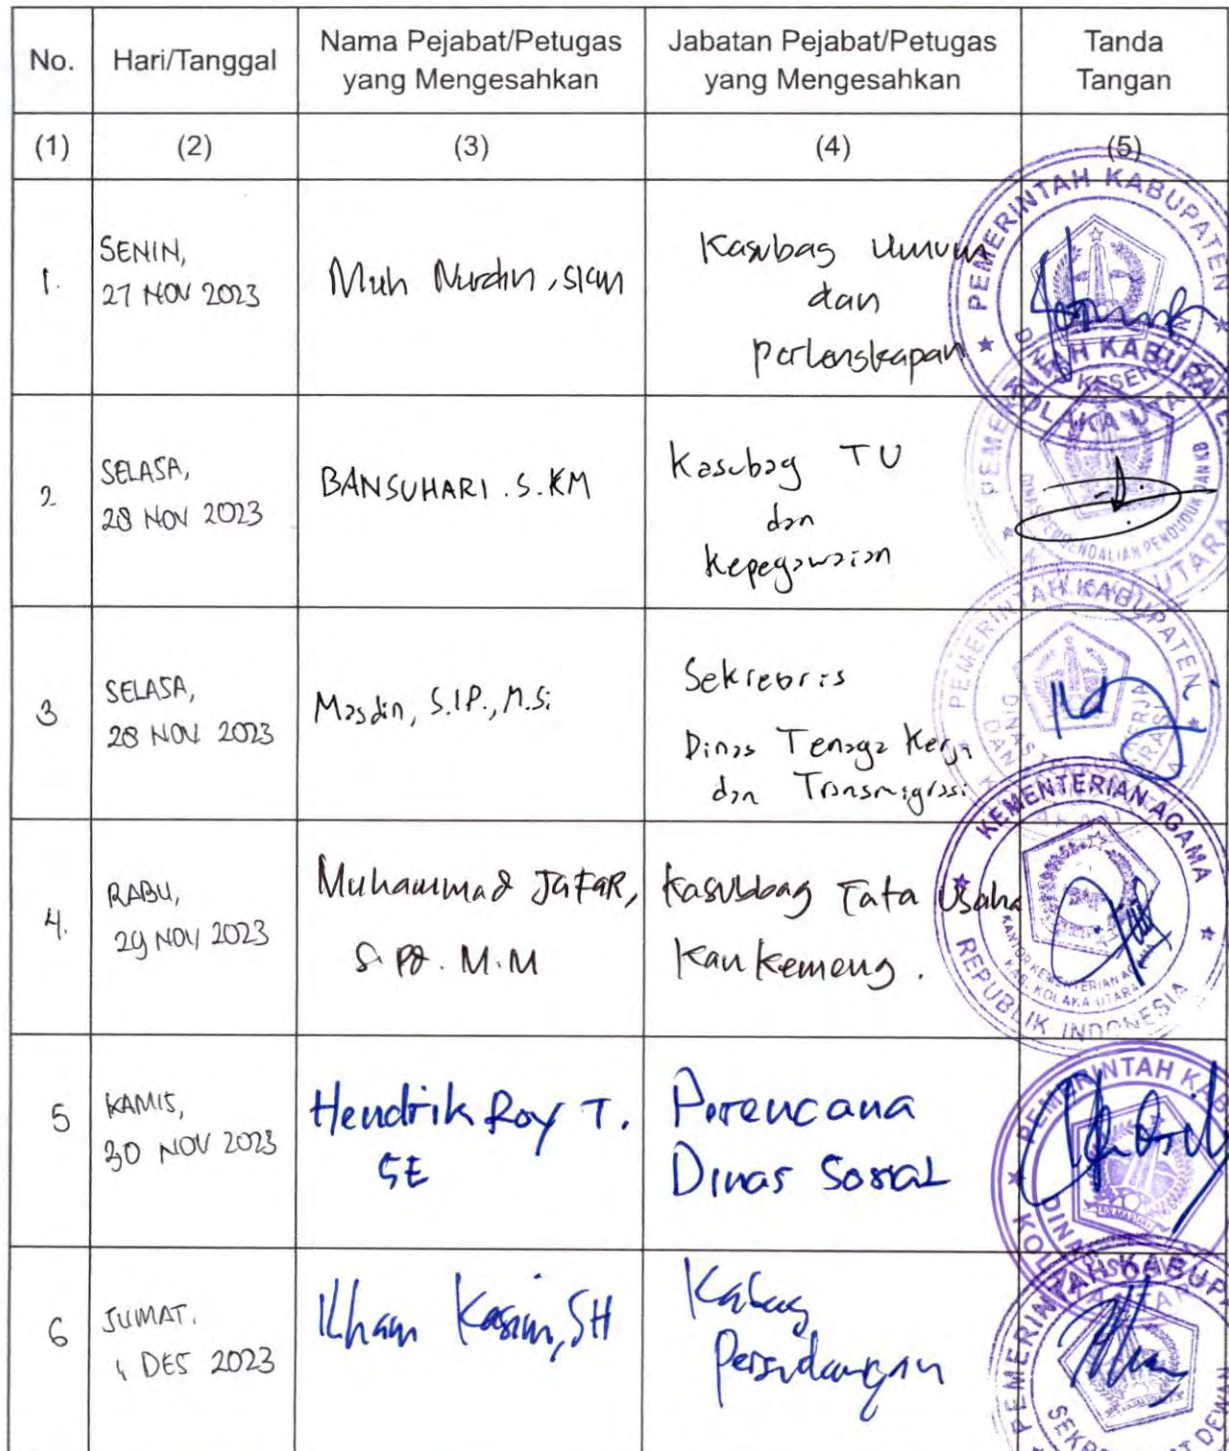 No.
Hari/Tanggal
Nama Pejabat/Petugas
yang Mengesahkan
Jabatan Pejabat/Petugas
yang Mengesahkan
Tanda
Tangan
(1)
(2)
(3)
(4)
(5)
1.
SENIN,
27 NOV 2023
Muh Nurdin, SKM
Kasubag Umum
dan
Perlengkapan
PEMERINTAH KABUPATEN
KOLAKA UTARA
2
SELASA,
28 NOV 2023
BANSUHARI . S.KM
Kasubag TU
dan
Kepegawaian
DINAS PENGENDALIAN PENDUDUK DAN KB
3
SELASA,
28 NOV 2023
Masdin, S.IP., M.Si
Sekretaris
Dinas Tenaga Kerja
dan Transmigrasi
PEMERINTAH KABUPATEN
4.
RABU,
29 NOV 2023
Muhammad JaFaR,
S.Pd. M.M
Kasubbag Tata Usaha
Kankemenag.
KEMENTERIAN AGAMA
REPUBLIK INDONESIA
KANTOR KEMENTERIAN AGAMA
KAB. KOLAKA UTARA
5
KAMIS,
30 NOV 2023
Hendrik Roy T.
SE
Perencana
Dinas Sosial
6
JUMAT,
1 DES 2023
Ilham Kasim, SH
Kabag
Persidangan